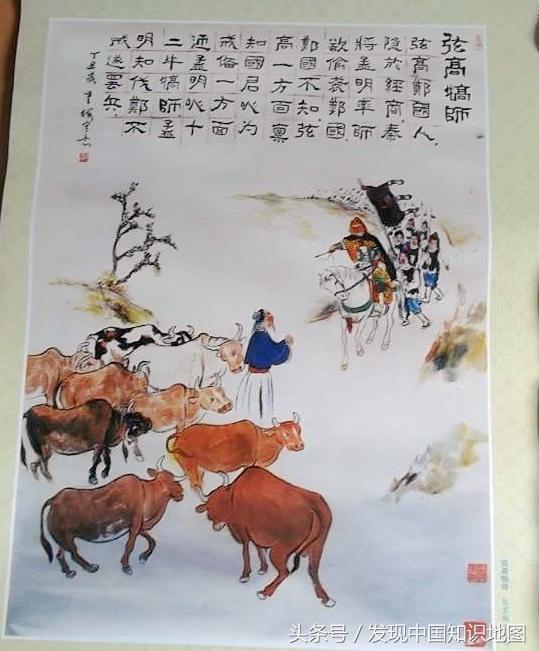 弦高犒師
弦高鄭國人，
隐於經商，秦
將孟明率師
欲偷袭鄭國，
鄭國不知，弦
高一方面禀
知國君以为
戒备一方面
迎孟明以十
二牛犒師，孟
明知伐鄭不
成遂罢兵，
丁丑
弦高犒师
头条号 / 发现中国知识地图